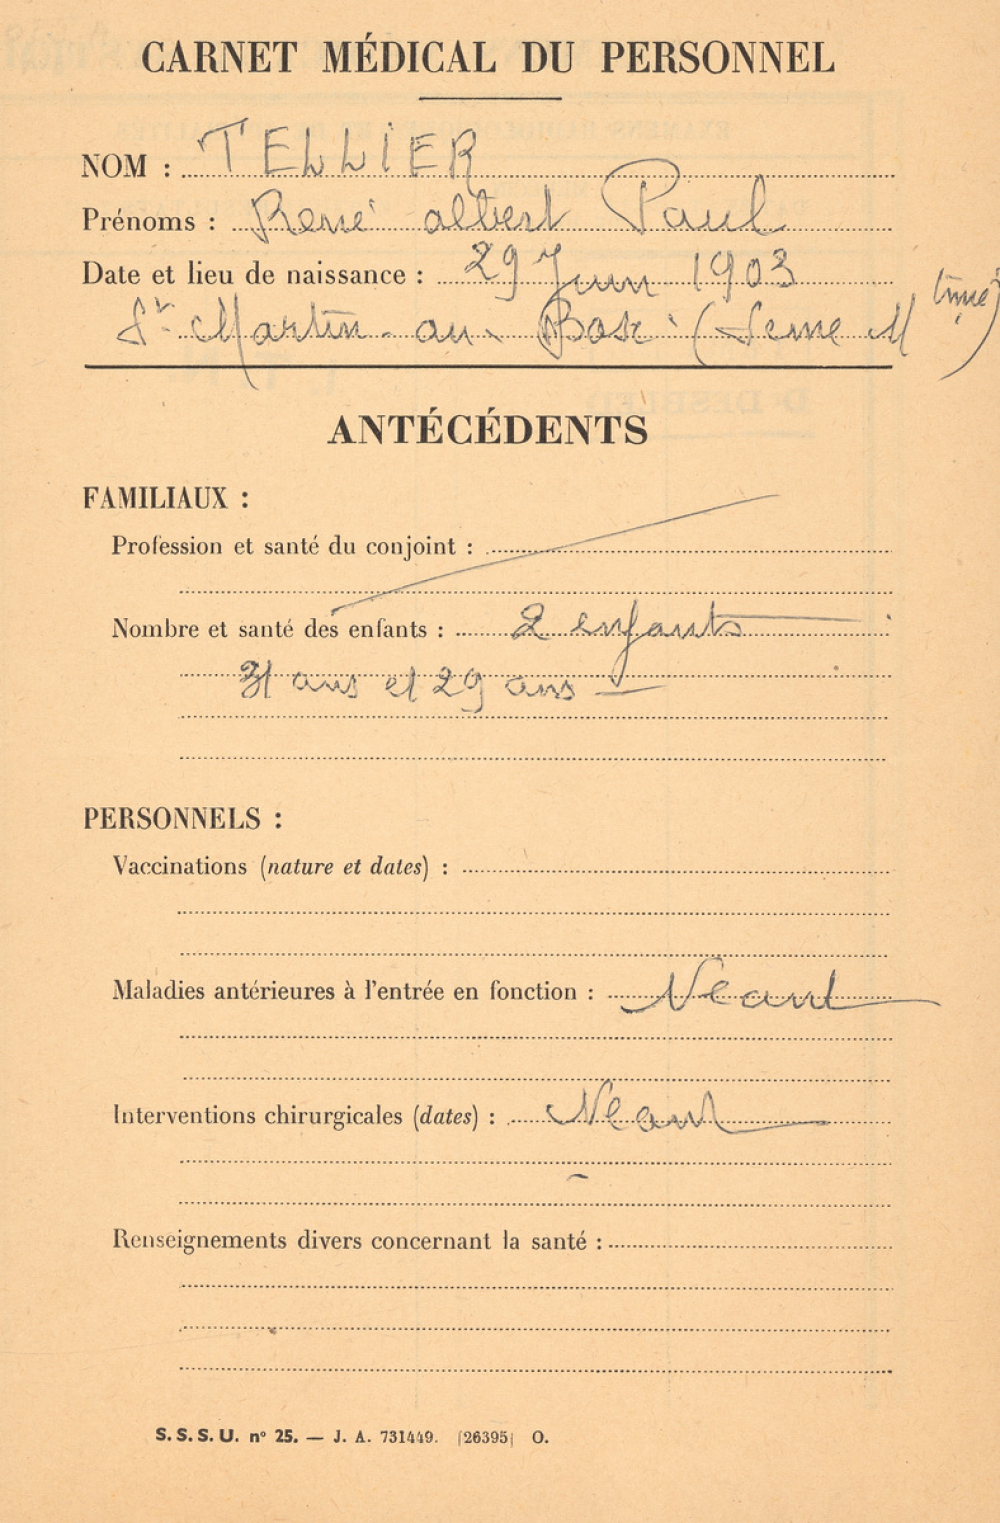 CARNET MÉDICAL DU PERSONNEL
NOM : TELLIER
Prénoms : René albert Paul
Date et lieu de naissance : 29 Juin 1903
St Martin au Bosc (Seine Mtime)
ANTÉCÉDENTS
FAMILIAUX :
Profession et santé du conjoint :
Nombre et santé des enfants : 2 enfants
31 ans et 29 ans
PERSONNELS :
Vaccinations (nature et dates) :
Maladies antérieures à l'entrée en fonction : Néant
Interventions chirurgicales (dates) : Néant
Renseignements divers concernant la santé :
S.S.S.U. nº 25. — J. A. 731449. (26395) O.